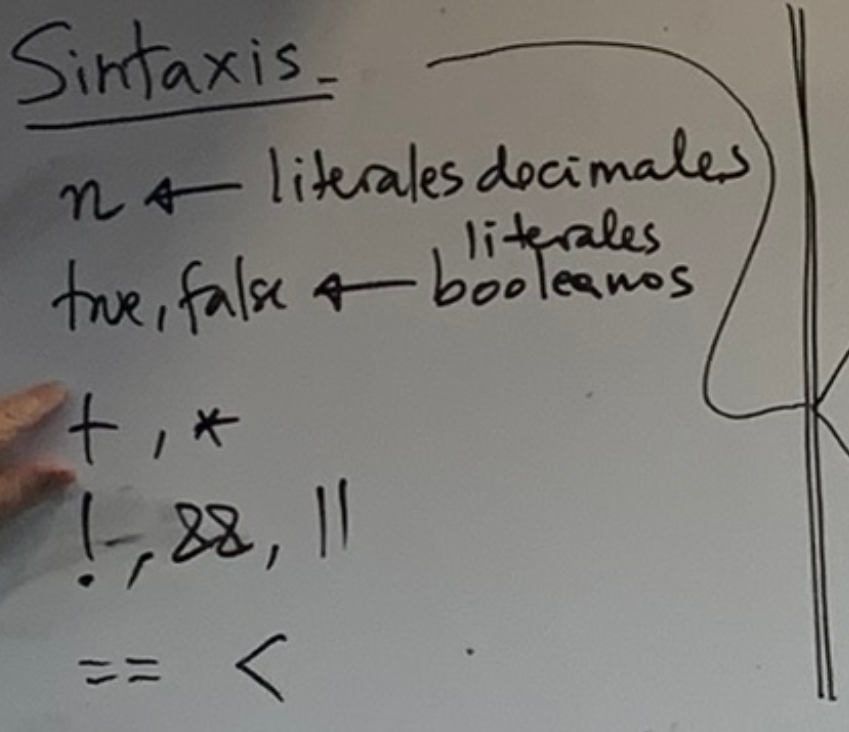 Sintaxis -
n ← literales decimales
true, false ← literales booleanos
+ , *
! , && , ||
== <